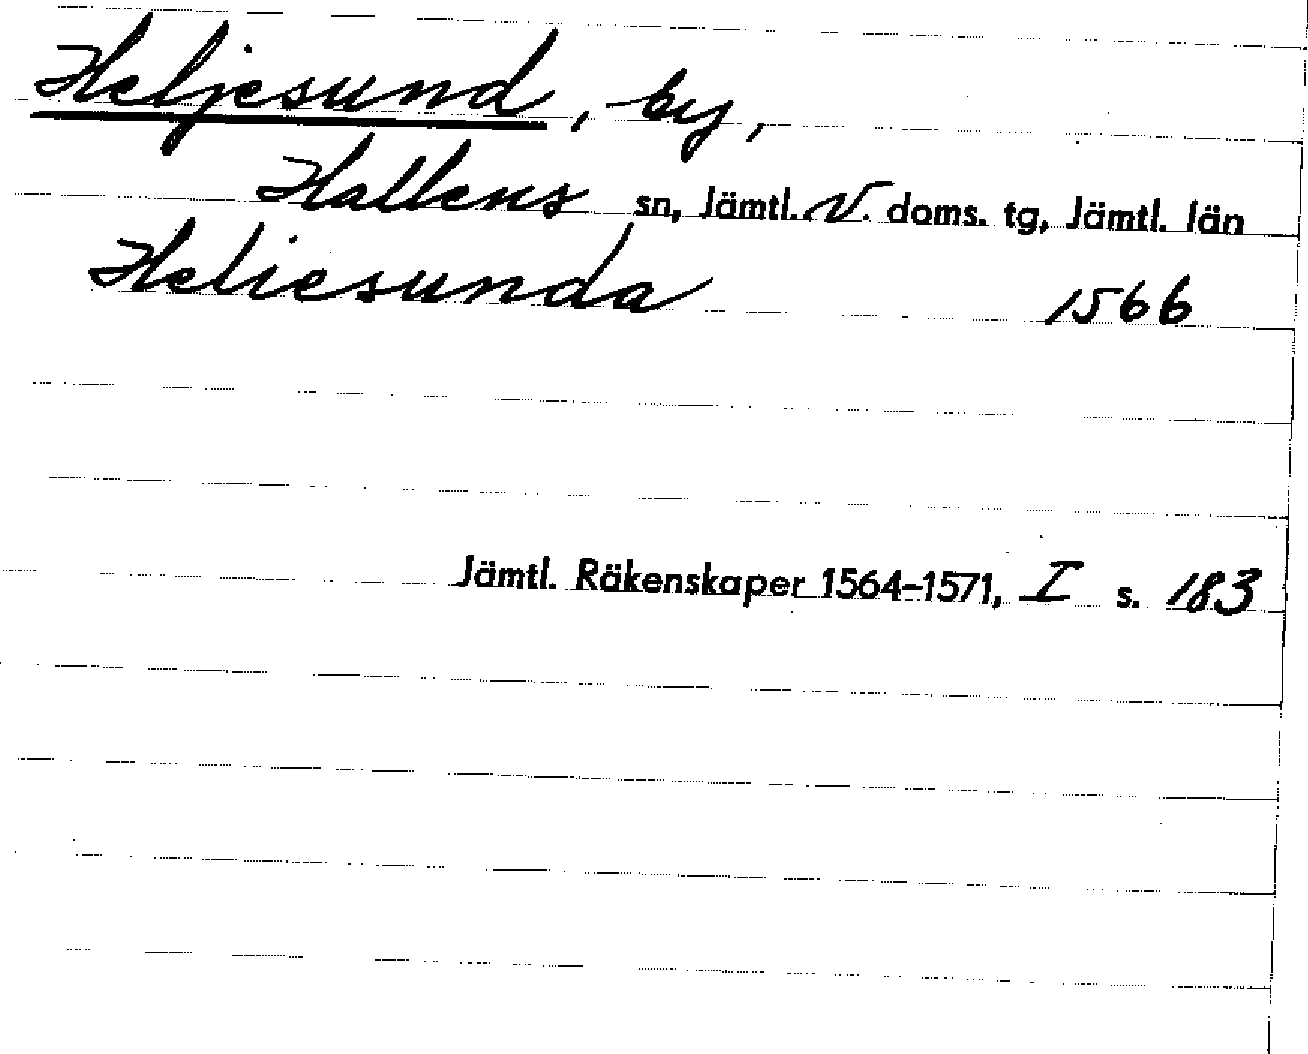 Heljesund, by,
Hallens sn, Jämtl. V. doms. tg, Jämtl. län
Heliesunda 1566
Jämtl. Räkenskaper 1564-1571, I s. 183